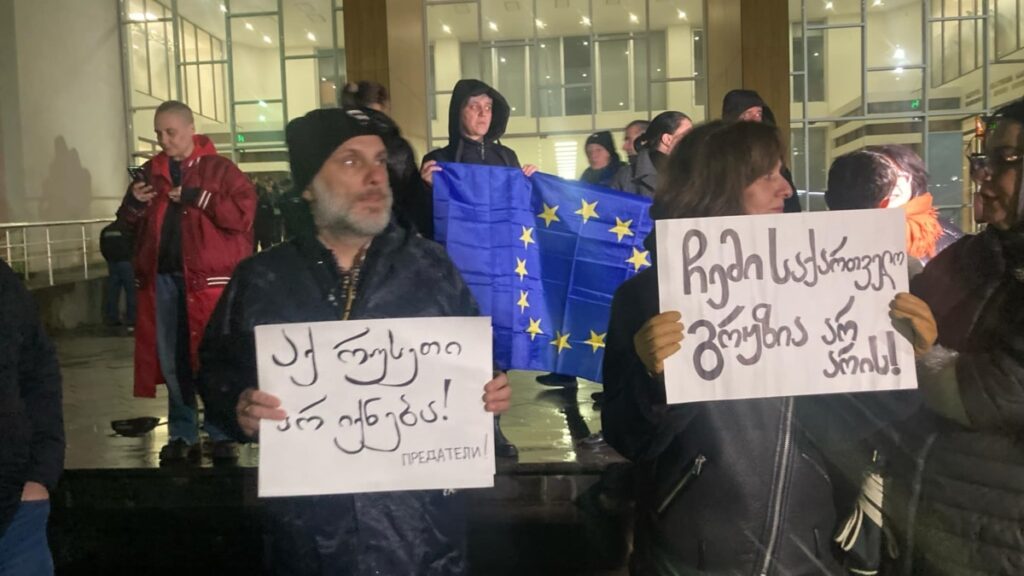 აქ რუსეთი
არ იქნება!
ПРЕДАТЕЛИ!
ჩემი საქართველო
გრუზია არ
არის!